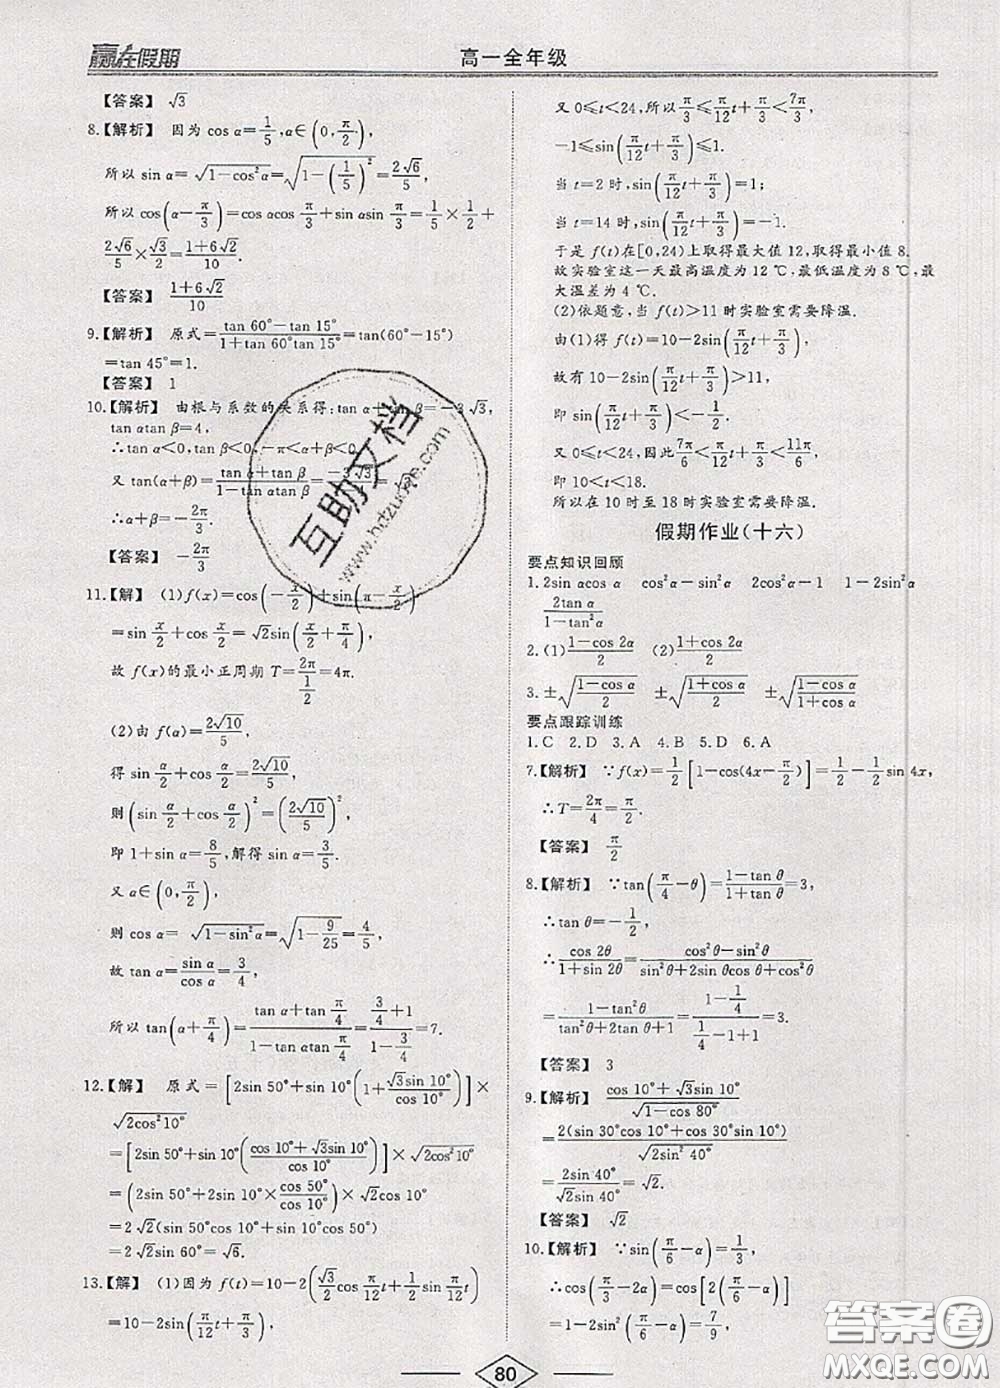 赢在假期
高一全年级
【答案】 √3
8.【解析】 因为 cos α=1/5,α∈(0,π/2),
所以 sin α=√(1-cos²α)=√(1-(1/5)²)=2√6/5,
所以 cos(α-π/3)=cos αcos π/3+sin αsin π/3=1/5×1/2+
2√6/5×√3/2=(1+6√2)/10.
【答案】 (1+6√2)/10
9.【解析】 原式=(tan 60°-tan 15°)/(1+tan 60°tan 15°)=tan(60°-15°)
=tan 45°=1.
【答案】 1
10.【解析】 由根与系数的关系得:tan α+tan β=-3√3,
tan αtan β=4,
∴tan α<0,tan β<0,-π<α+β<0,
又 tan(α+β)=(tan α+tan β)/(1-tan αtan β)=-3√3/
∴α+β=-2π/3.
【答案】 -2π/3
11.【解】 (1)f(x)=cos(-x/2)+sin(π-x/2)
=sin x/2+cos x/2=√2sin(x/2+π/4),
故 f(x)的最小正周期 T=2π/(1/2)=4π.
(2)由 f(α)=2√10/5,
得 sin α/2+cos α/2=2√10/5,
则(sin α/2+cos α/2)²=(2√10/5)²,
即 1+sin α=8/5,解得 sin α=3/5.
又 α∈(0,π/2),
则 cos α=√(1-sin²α)=√(1-9/25)=4/5,
故 tan α=sin α/cos α=3/4,
所以 tan(α+π/4)=(tan α+tan π/4)/(1-tan αtan π/4)=(3/4+1)/(1-3/4)=7.
12.【解】 原式=[2sin 50°+sin 10°(1+√3sin 10°/cos 10°)]×
√(2cos²10°)
=[2sin 50°+sin 10°((cos 10°+√3sin 10°)/cos 10°)]×√(2cos²10°)
=(2sin 50°+2sin 10°×cos 50°/cos 10°)×√2cos 10°
=2√2(sin 50°cos 10°+sin 10°cos 50°)
=2√2sin 60°=√6.
13.【解】 (1)因为 f(t)=10-2(√3/2cos π/12t+1/2sin π/12t)
=10-2sin(π/12t+π/3),
又 0≤t<24,所以 π/3≤π/12t+π/3<7π/3,
-1≤sin(π/12t+π/3)≤1.
当 t=2 时,sin(π/12t+π/3)=1;
当 t=14 时,sin(π/12t+π/3)=-1.
于是 f(t)在[0,24)上取得最大值 12,取得最小值 8.
故实验室这一天最高温度为 12 ℃,最低温度为 8 ℃,最
大温差为 4 ℃.
(2)依题意,当 f(t)>11 时实验室需要降温.
由(1)得 f(t)=10-2sin(π/12t+π/3),
故有 10-2sin(π/12t+π/3)>11,
即 sin(π/12t+π/3)<-1/2.
又 0≤t<24,因此 7π/6<π/12t+π/3<11π/6,
即 10<t<18.
所以在 10 时至 18 时实验室需要降温.
假期作业(十六)
要点知识回顾
1.2sin αcos α cos²α-sin²α 2cos²α-1 1-2sin²α
2tan α/(1-tan²α)
2.(1)(1-cos 2α)/2 (2)(1+cos 2α)/2
3.±√((1-cos α)/2) ±√((1+cos α)/2) ±√((1-cos α)/(1+cos α))
要点跟踪训练
1.C 2.D 3.A 4.B 5.D 6.A
7.【解析】 ∵f(x)=1/2[1-cos(4x-π/2)]=1/2-1/2sin 4x,
∴T=2π/4=π/2.
【答案】 π/2
8.【解析】 ∵tan(π/4-θ)=(1-tan θ)/(1+tan θ)=3,
∴tan θ=-1/2,
∴cos 2θ/(1+sin 2θ)=(cos²θ-sin²θ)/(sin²θ+2sin θcos θ+cos²θ)
=(1-tan²θ)/(tan²θ+2tan θ+1)=(1-1/4)/(1/4-1+1)=3.
【答案】 3
9.【解析】 (cos 10°+√3sin 10°)/√(1-cos 80°)
=2(sin 30°cos 10°+cos 30°sin 10°)/√(2sin²40°)
=2sin 40°/(√2sin 40°)=√2.
【答案】 √2
10.【解析】 ∵sin(π/6-α)=1/3,
∴cos(π/3-2α)=cos[2(π/6-α)]
=1-2sin²(π/6-α)=7/9,
80
互助文档
www.hdzuoye.com
答案圈
MXQE.COM